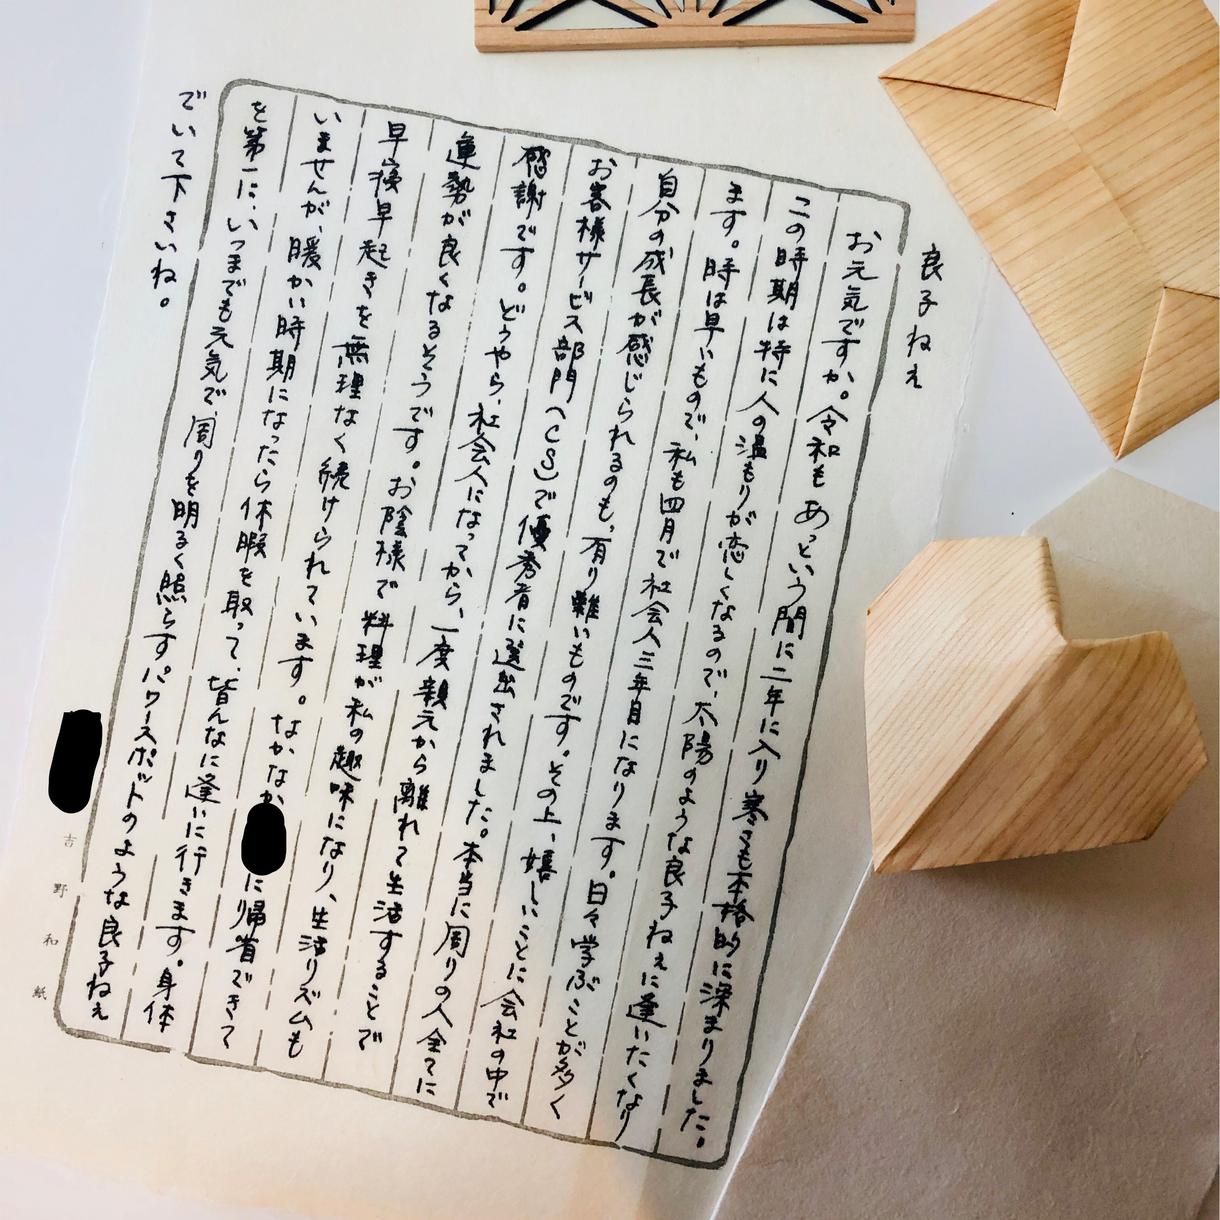 良子ねぇ
お元気ですか。令和もあっという間に二年に入り寒さも本格的に深まりました。
この時期は特に人の温もりが恋しくなるので、太陽のような良子ねぇに逢いたくなり
ます。時は早いもので、私も四月で社会人三年目になります。日々学ぶことが多く
自分の成長が感じられるのも、有り難いものです。その上、嬉しいことに会社の中で
お客様サービス部門(CS)で優秀者に選出されました。本当に周りの人全てに
感謝です。どうやら、社会人になってから、一度親元から離れて生活することで
運勢が良くなるそうです。お陰様で料理が私の趣味になり、生活リズムも
早寝早起きを無理なく続けられています。なかなか に帰省できて
いませんが、暖かい時期になったら休暇を取って、皆んなに逢いに行きます。身体
を第一に、いつまでも元気で、周りを明るく照らすパワースポットのような良子ねぇ
でいて下さいね。
吉野和紙